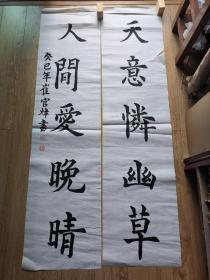 天意憐幽草
人間愛晚晴
癸巳年崔官烽書